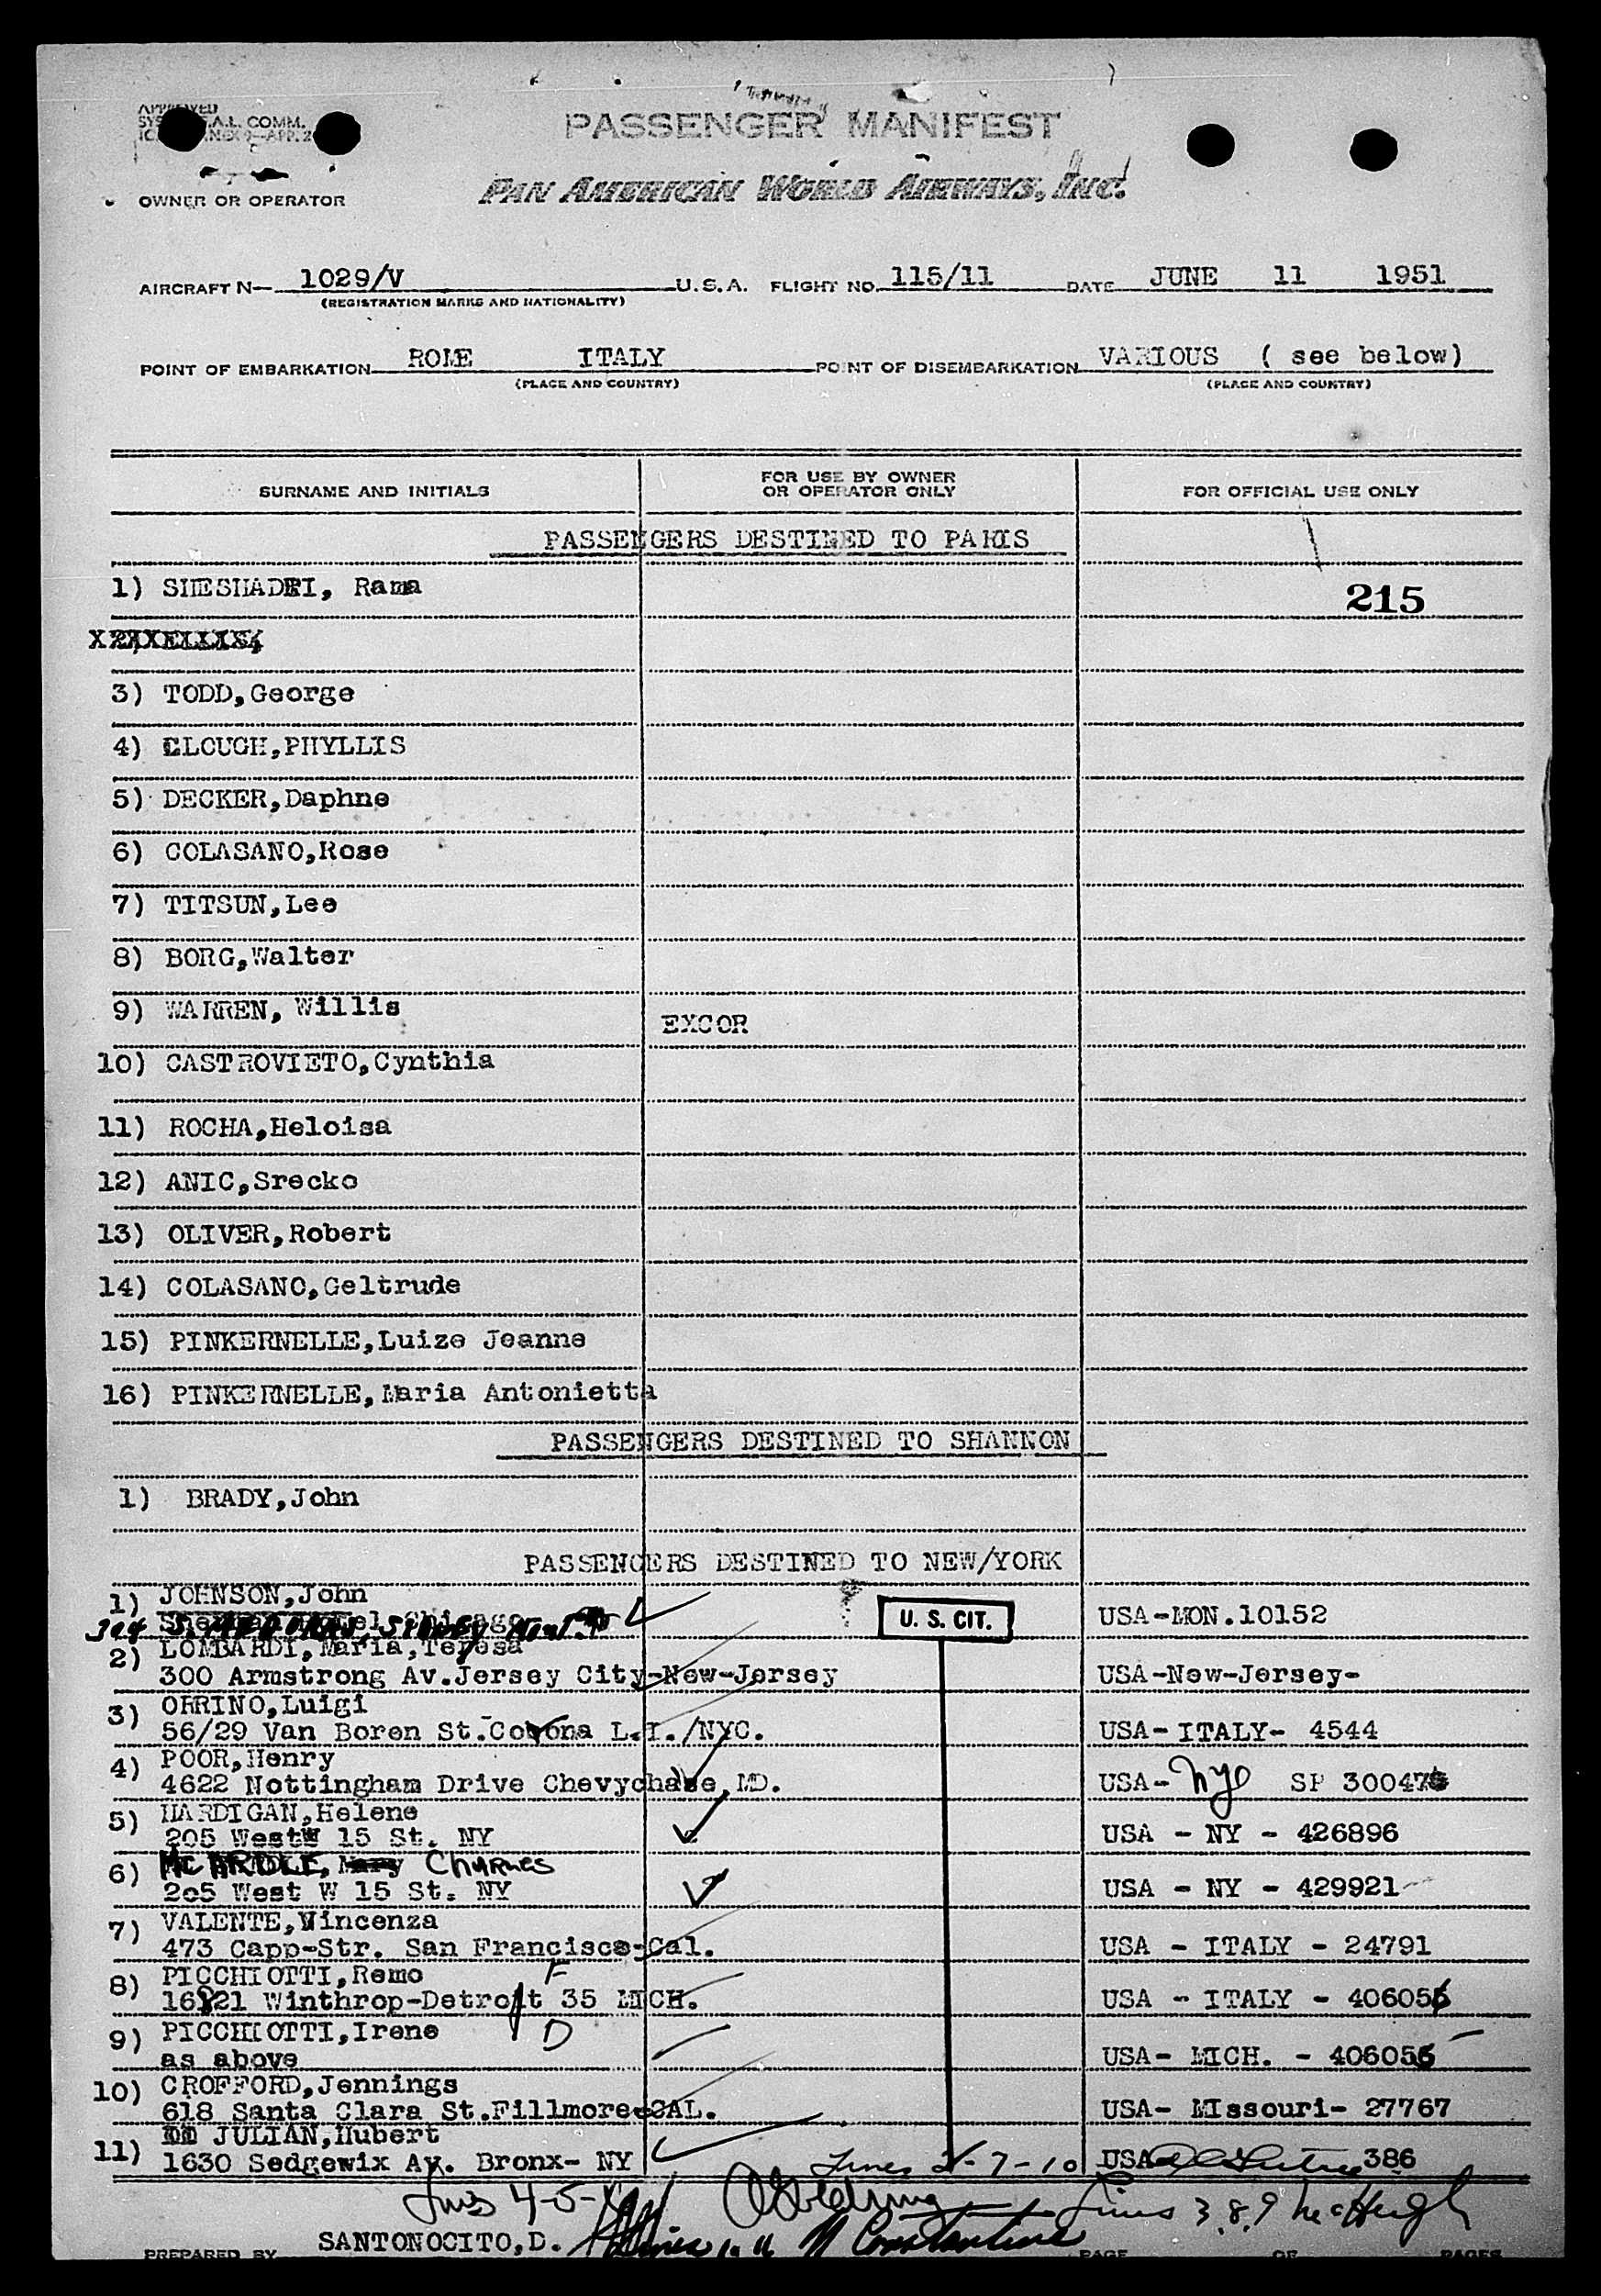 APPROVED
A.L. COMM.
PASSENGER MANIFEST
OWNER OR OPERATOR
PAN AMERICAN WORLD AIRWAYS, INC.
AIRCRAFT N— 1029/V U.S.A. FLIGHT NO. 115/11 DATE JUNE 11 1951
(REGISTRATION MARKS AND NATIONALITY)
POINT OF EMBARKATION ROME ITALY POINT OF DISEMBARKATION VARIOUS ( see below)
(PLACE AND COUNTRY) (PLACE AND COUNTRY)
SURNAME AND INITIALS FOR USE BY OWNER OR OPERATOR ONLY FOR OFFICIAL USE ONLY
PASSENGERS DESTINED TO PARIS
1) SHESHADRI, Rama 215
3) TODD,George
4) CLOUGH,PHYLLIS
5) DECKER,Daphne
6) COLASANO,Rose
7) TITSUN,Lee
8) BORG,Walter
9) WARREN, Willis EXCOR
10) CASTROVIETO,Cynthia
11) ROCHA,Heloisa
12) ANIC,Srecko
13) OLIVER,Robert
14) COLASANO,Geltrude
15) PINKERNELLE,Luize Jeanne
16) PINKERNELLE,Maria Antonietta
PASSENGERS DESTINED TO SHANNON
1) BRADY,John
PASSENGERS DESTINED TO NEW/YORK
1) JOHNSON,John
U. S. CIT. USA-MON.10152
2) LOMBARDI,Maria,Teresa
300 Armstrong Av.Jersey City-New-Jersey USA-New-Jersey-
3) ORRINO,Luigi
56/29 Van Boren St.Corona L.I./NYC. USA-ITALY- 4544
4) POOR,Henry
4622 Nottingham Drive Chevychase,MD. USA- NYC SP 30047
5) HARDIGAN,Helene
205 West 15 St. NY USA - NY - 426896
6) McARDLE, Mary Charles
205 West W 15 St. NY USA - NY - 429921
7) VALENTE,Vincenza
473 Capp-Str. San Francisco-Cal. USA - ITALY - 24791
8) PICCHIOTTI,Remo F
16821 Winthrop-Detroit 35 MICH. USA - ITALY - 406056
9) PICCHIOTTI,Irene D
as above USA- MICH. - 406056
10) CROFFORD,Jennings
618 Santa Clara St.Fillmore-CAL. USA- MIssouri- 27767
11) JULIAN,Hubert
1630 Sedgewix Av. Bronx- NY Lines 2-7-10 USA 386
Lines 3.8.9 McHugh
SANTONOCITO,D.
PREPARED BY PAGE OF PAGES